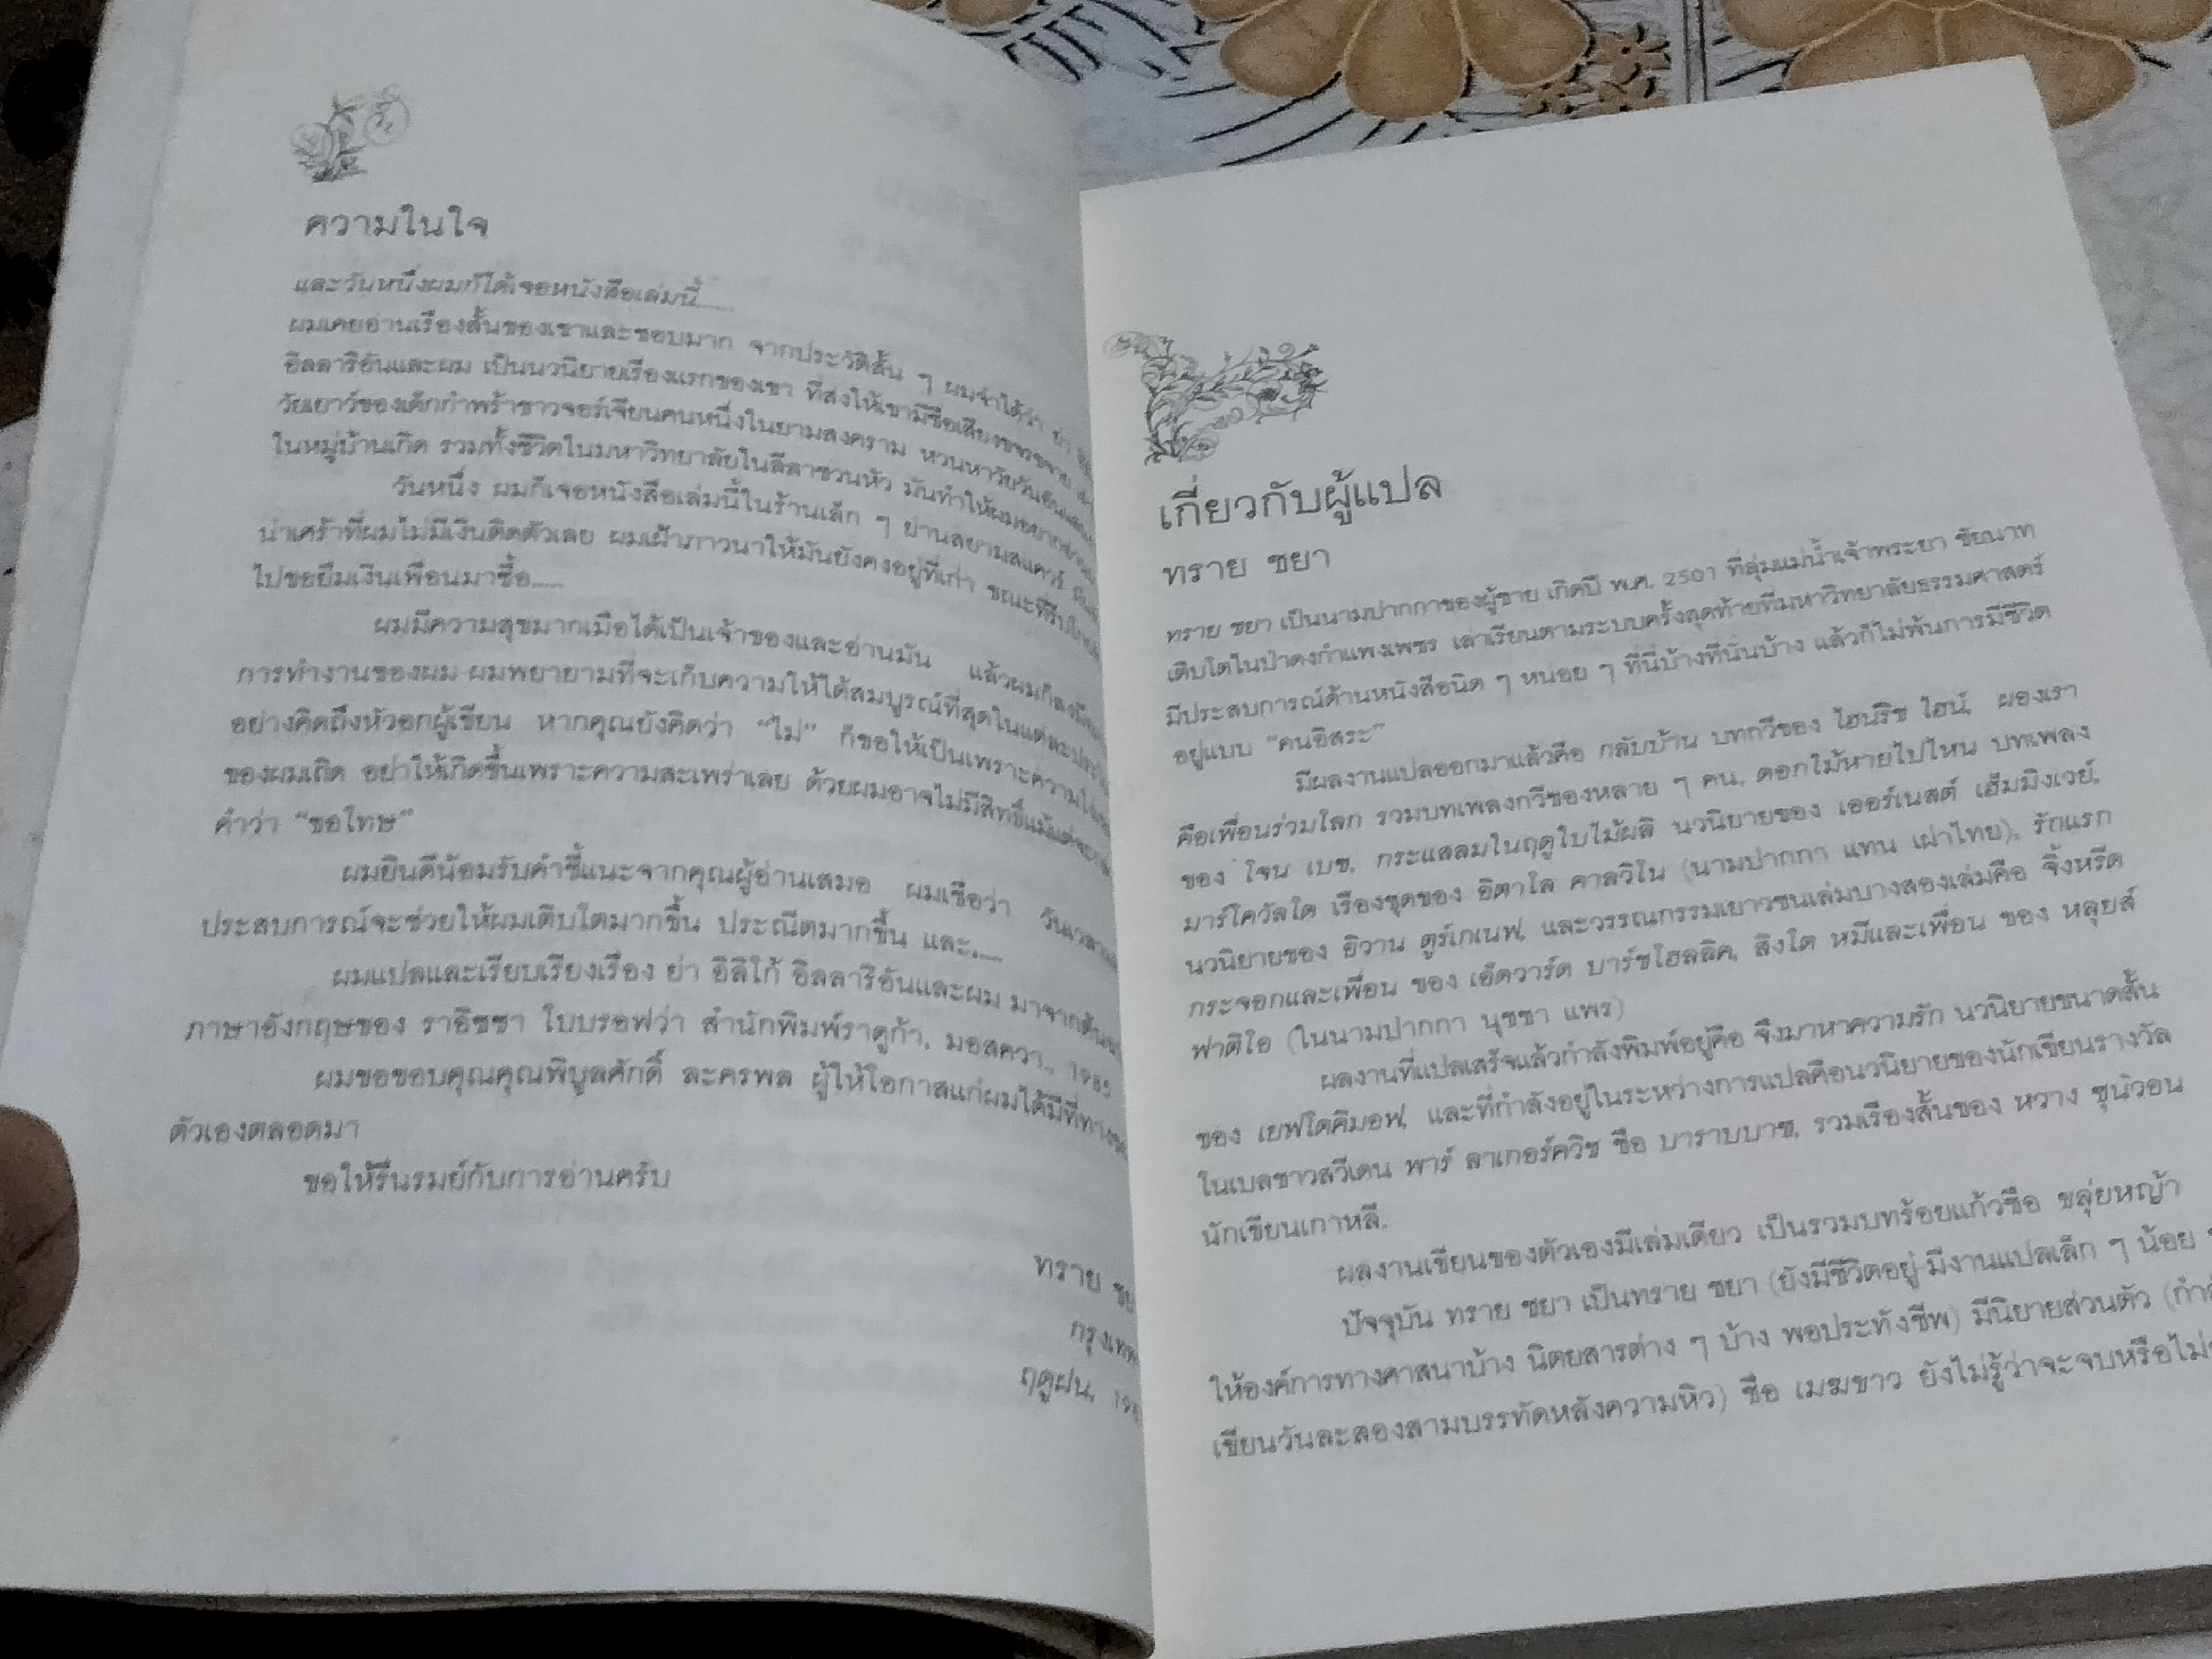 ความในใจ
และวันหนึ่งผมก็ได้เจอหนังสือเล่มนี้......
ผมเคยอ่านเรื่องสั้นของเขาและชอบมาก จากประวัติสั้น ๆ ผมจำได้ว่า ย่า
อิลลาริอันและผม เป็นนวนิยายเรื่องแรกของเขา ที่ส่งให้เขามีชื่อเสียงขจรขจาย
วัยเยาว์ของเด็กกำพร้าชาวจอร์เจียนคนหนึ่งในยามสงคราม หวนหาวัยวันอัน
ในหมู่บ้านเกิด รวมทั้งชีวิตในมหาวิทยาลัยในลีลาชวนหัว มันทำให้ผมอยาก
วันหนึ่ง ผมก็เจอหนังสือเล่มนี้ในร้านเล็ก ๆ ย่านสยามสแควร์
น่าเศร้าที่ผมไม่มีเงินติดตัวเลย ผมเฝ้าภาวนาให้มันยังคงอยู่ที่เก่า ขณะที่รีบ
ไปขอยืมเงินเพื่อนมาซื้อ......
ผมมีความสุขมากเมื่อได้เป็นเจ้าของและอ่านมัน แล้วผมก็ลงมือ
การทำงานของผม ผมพยายามที่จะเก็บความให้ได้สมบูรณ์ที่สุดในแต่ละ
อย่างคิดถึงหัวอกผู้เขียน หากคุณยังคิดว่า “ไม่” ก็ขอให้เป็นเพราะความ
ของผมเถิด อย่าให้เกิดขึ้นเพราะความสะเพร่าเลย ด้วยผมอาจไม่มีสิทธิ์แม้แต่จะ
คำว่า “ขอโทษ”
ผมยินดีน้อมรับคำชี้แนะจากคุณผู้อ่านเสมอ ผมเชื่อว่า วันเวลา
ประสบการณ์จะช่วยให้ผมเติบโตมากขึ้น ประณีตมากขึ้น และ......
ผมแปลและเรียบเรียงเรื่อง ย่า อิลิโก้ อิลลาริอันและผม มาจากต้น
ภาษาอังกฤษของ ราอิซซา โบบรอฟว่า สำนักพิมพ์ราดูก้า, มอสควา., 1985
ผมขอขอบคุณคุณพิบูลศักดิ์ ละครพล ผู้ให้โอกาสแก่ผมได้มีที่ทาง
ตัวเองตลอดมา
ขอให้รื่นรมย์กับการอ่านครับ
ทราย
กรุงเทพ
ฤดูฝน,
เกี่ยวกับผู้แปล
ทราย ชยา
ทราย ชยา เป็นนามปากกาของผู้ชาย เกิดปี พ.ศ. 2501 ที่ลุ่มแม่น้ำเจ้าพระยา ชัยนาท
เติบโตในป่าดงกำแพงเพชร เล่าเรียนตามระบบครั้งสุดท้ายที่มหาวิทยาลัยธรรมศาสตร์
มีประสบการณ์ด้านหนังสือนิด ๆ หน่อย ๆ ที่นี่บ้างที่นั่นบ้าง แล้วก็ไม่พ้นการมีชีวิต
อยู่แบบ “คนอิสระ”
มีผลงานแปลออกมาแล้วคือ กลับบ้าน บทกวีของ ไฮน์ริช ไฮน์, ผองเรา
คือเพื่อนร่วมโลก รวมบทเพลงกวีของหลาย ๆ คน, ดอกไม้หายไปไหน บทเพลง
ของ โจน เบซ, กระแสลมในฤดูใบไม้ผลิ นวนิยายของ เออร์เนสต์ เฮ็มมิงเวย์,
มาร์โควัลโด เรื่องชุดของ อิตาโล คาลวิโน (นามปากกา แทน เฝ่าไทย), รักแรก
นวนิยายของ อิวาน ตูร์เกเนฟ, และวรรณกรรมเยาวชนเล่มบางสองเล่มคือ จิ้งหรีด
กระจอกและเพื่อน ของ เอ็ดวาร์ด บาร์ซโฮลลิค, สิงโต หมีและเพื่อน ของ หลุยส์
ฟาติโอ (ในนามปากกา นุชชา แพร)
ผลงานที่แปลเสร็จแล้วกำลังพิมพ์อยู่คือ จึงมาหาความรัก นวนิยายขนาดสั้น
ของ เยฟโดคิมอฟ, และที่กำลังอยู่ในระหว่างการแปลคือนวนิยายของนักเขียนรางวัล
โนเบลชาวสวีเดน พาร์ ลาเกอร์ควิช ชื่อ บาราบบาซ, รวมเรื่องสั้นของ หวาง ซุนวอน
นักเขียนเกาหลี.
ผลงานเขียนของตัวเองมีเล่มเดียว เป็นรวมบทร้อยแก้วชื่อ ขลุ่ยหญ้า
ปัจจุบัน ทราย ชยา เป็นทราย ชยา (ยังมีชีวิตอยู่-มีงานแปลเล็ก ๆ น้อย
ให้องค์การทางศาสนาบ้าง นิตยสารต่าง ๆ บ้าง พอประทังชีพ) มีนิยายส่วนตัว
เขียนวันละสองสามบรรทัดหลังความหิว) ชื่อ เมฆขาว ยังไม่รู้ว่าจะจบหรือไม่